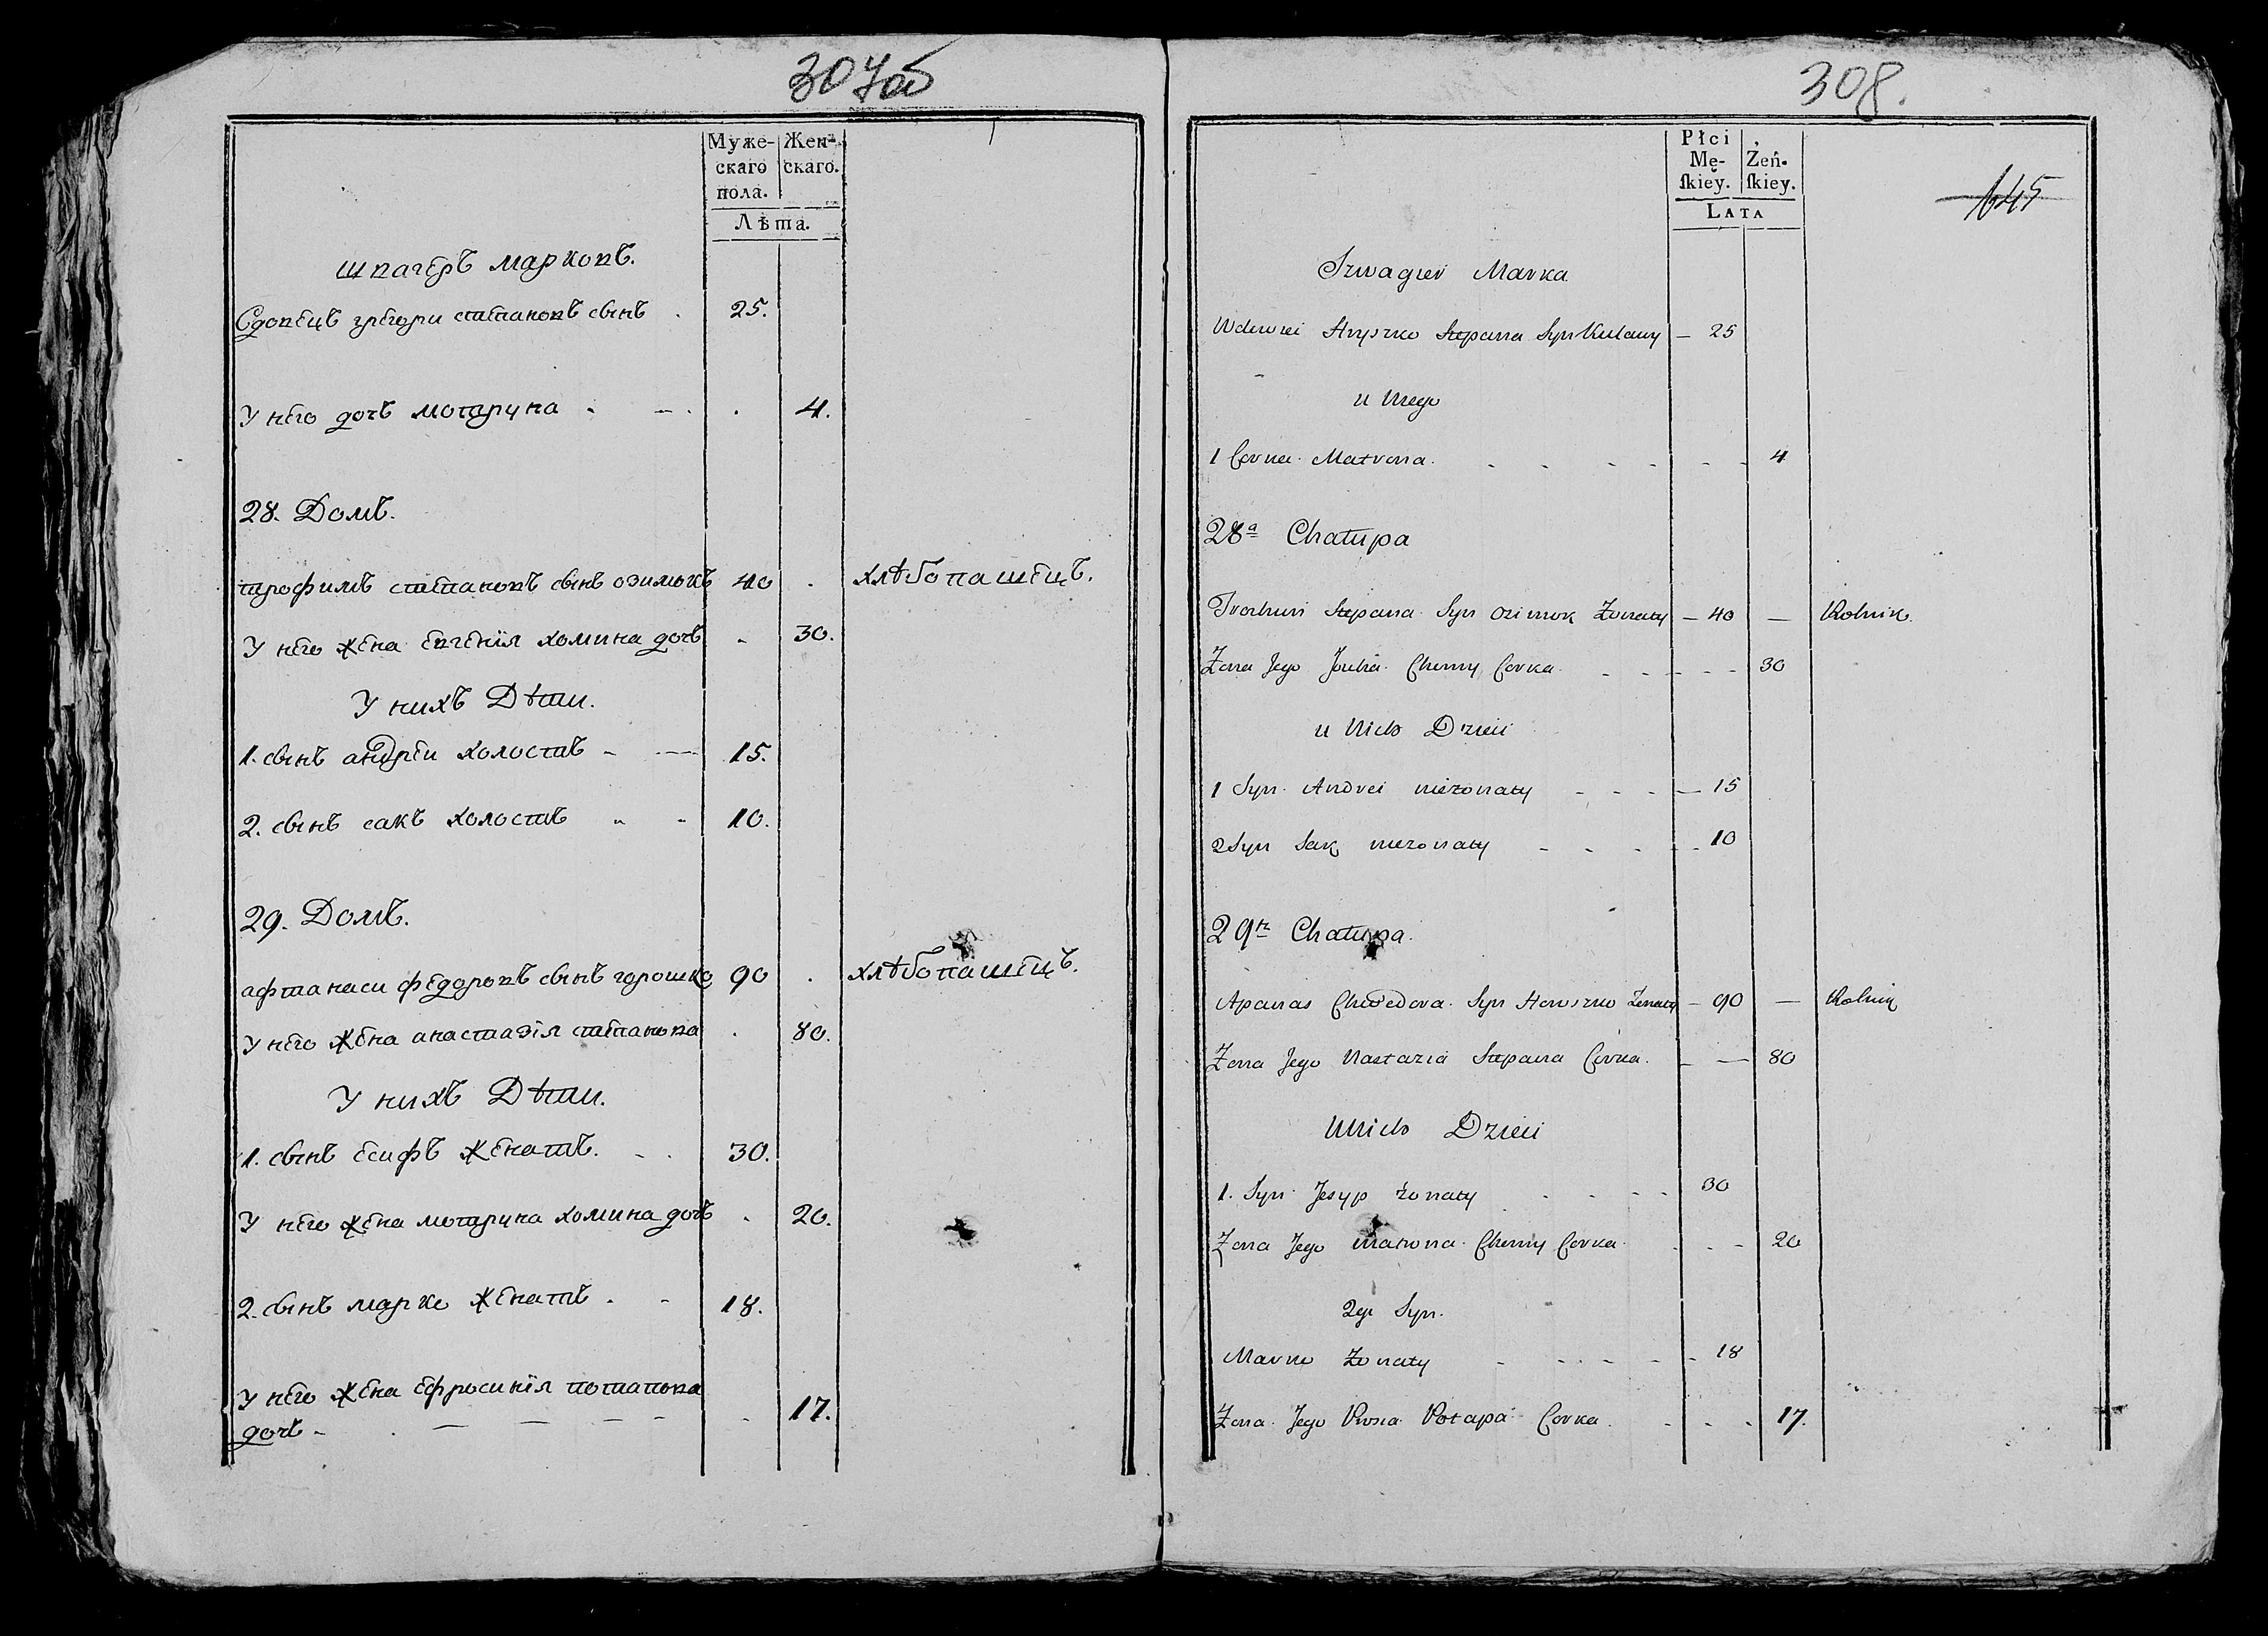 307об
Муже- Жен-
скаго скаго.
пола.
Лѣта.
шваґеръ марковъ.
Сдовецъ грегори степановъ сынъ . 25.
У него дочъ мотруна - - . . 4.
28. Домъ.
трофимъ степановъ сынъ озимокъ 40 . хлѣбопашецъ.
У него жена евгенїя хомина дочъ - 30.
У нихъ Дѣти.
1. сынъ андреи холостъ - - 15.
2. сынъ сакъ холостъ - - 10.
29. Домъ.
афтанаси федоровъ сынъ горошко 90 . хлѣбопашецъ.
У него жена анастазїя степанова . 80.
У нихъ Дѣти.
1. сынъ есифъ женатъ. - . 30.
У него жена мотруна хомина дочъ . 20.
2. сынъ марко женатъ . - 18.
У него жена ефросинїя потапова
дочъ - . - - - - - 17.
308.
645
Płci
Mę- Żeń-
ſkiey. ſkiey.
LATA
Szwagier Marka
Wdowiei Hryszko Stepana Syn Kulawy - 25
u Niego
1 Corka Matrona. - - - - - - 4
28ª Chałupa
Trochim Stepana Syn Ozimok Żonaty - 40 - Rolnik.
Żona Jego Jouhia Chomy Corka - - - - - 30
u Nich Dzieci
1 Syn Andrei nieżonaty - - - - 15
2 Syn Sak nieżonaty - - - - - 10
29ta Chałupa.
Apanas Chwedora Syn Horoszko Żonaty - 90 - Rolnik
Żona Jego Nastazia Stepana Corka. - - 80
U Nich Dzieci
1. Syn Jesyp żonaty . - - - 30
Żona Jego matrona Chomy Corka . . - 20
2gi Syn.
Marko Żonaty - - - - - - 18
Żona Jego Prosia Potapa Corka . - - . 17.